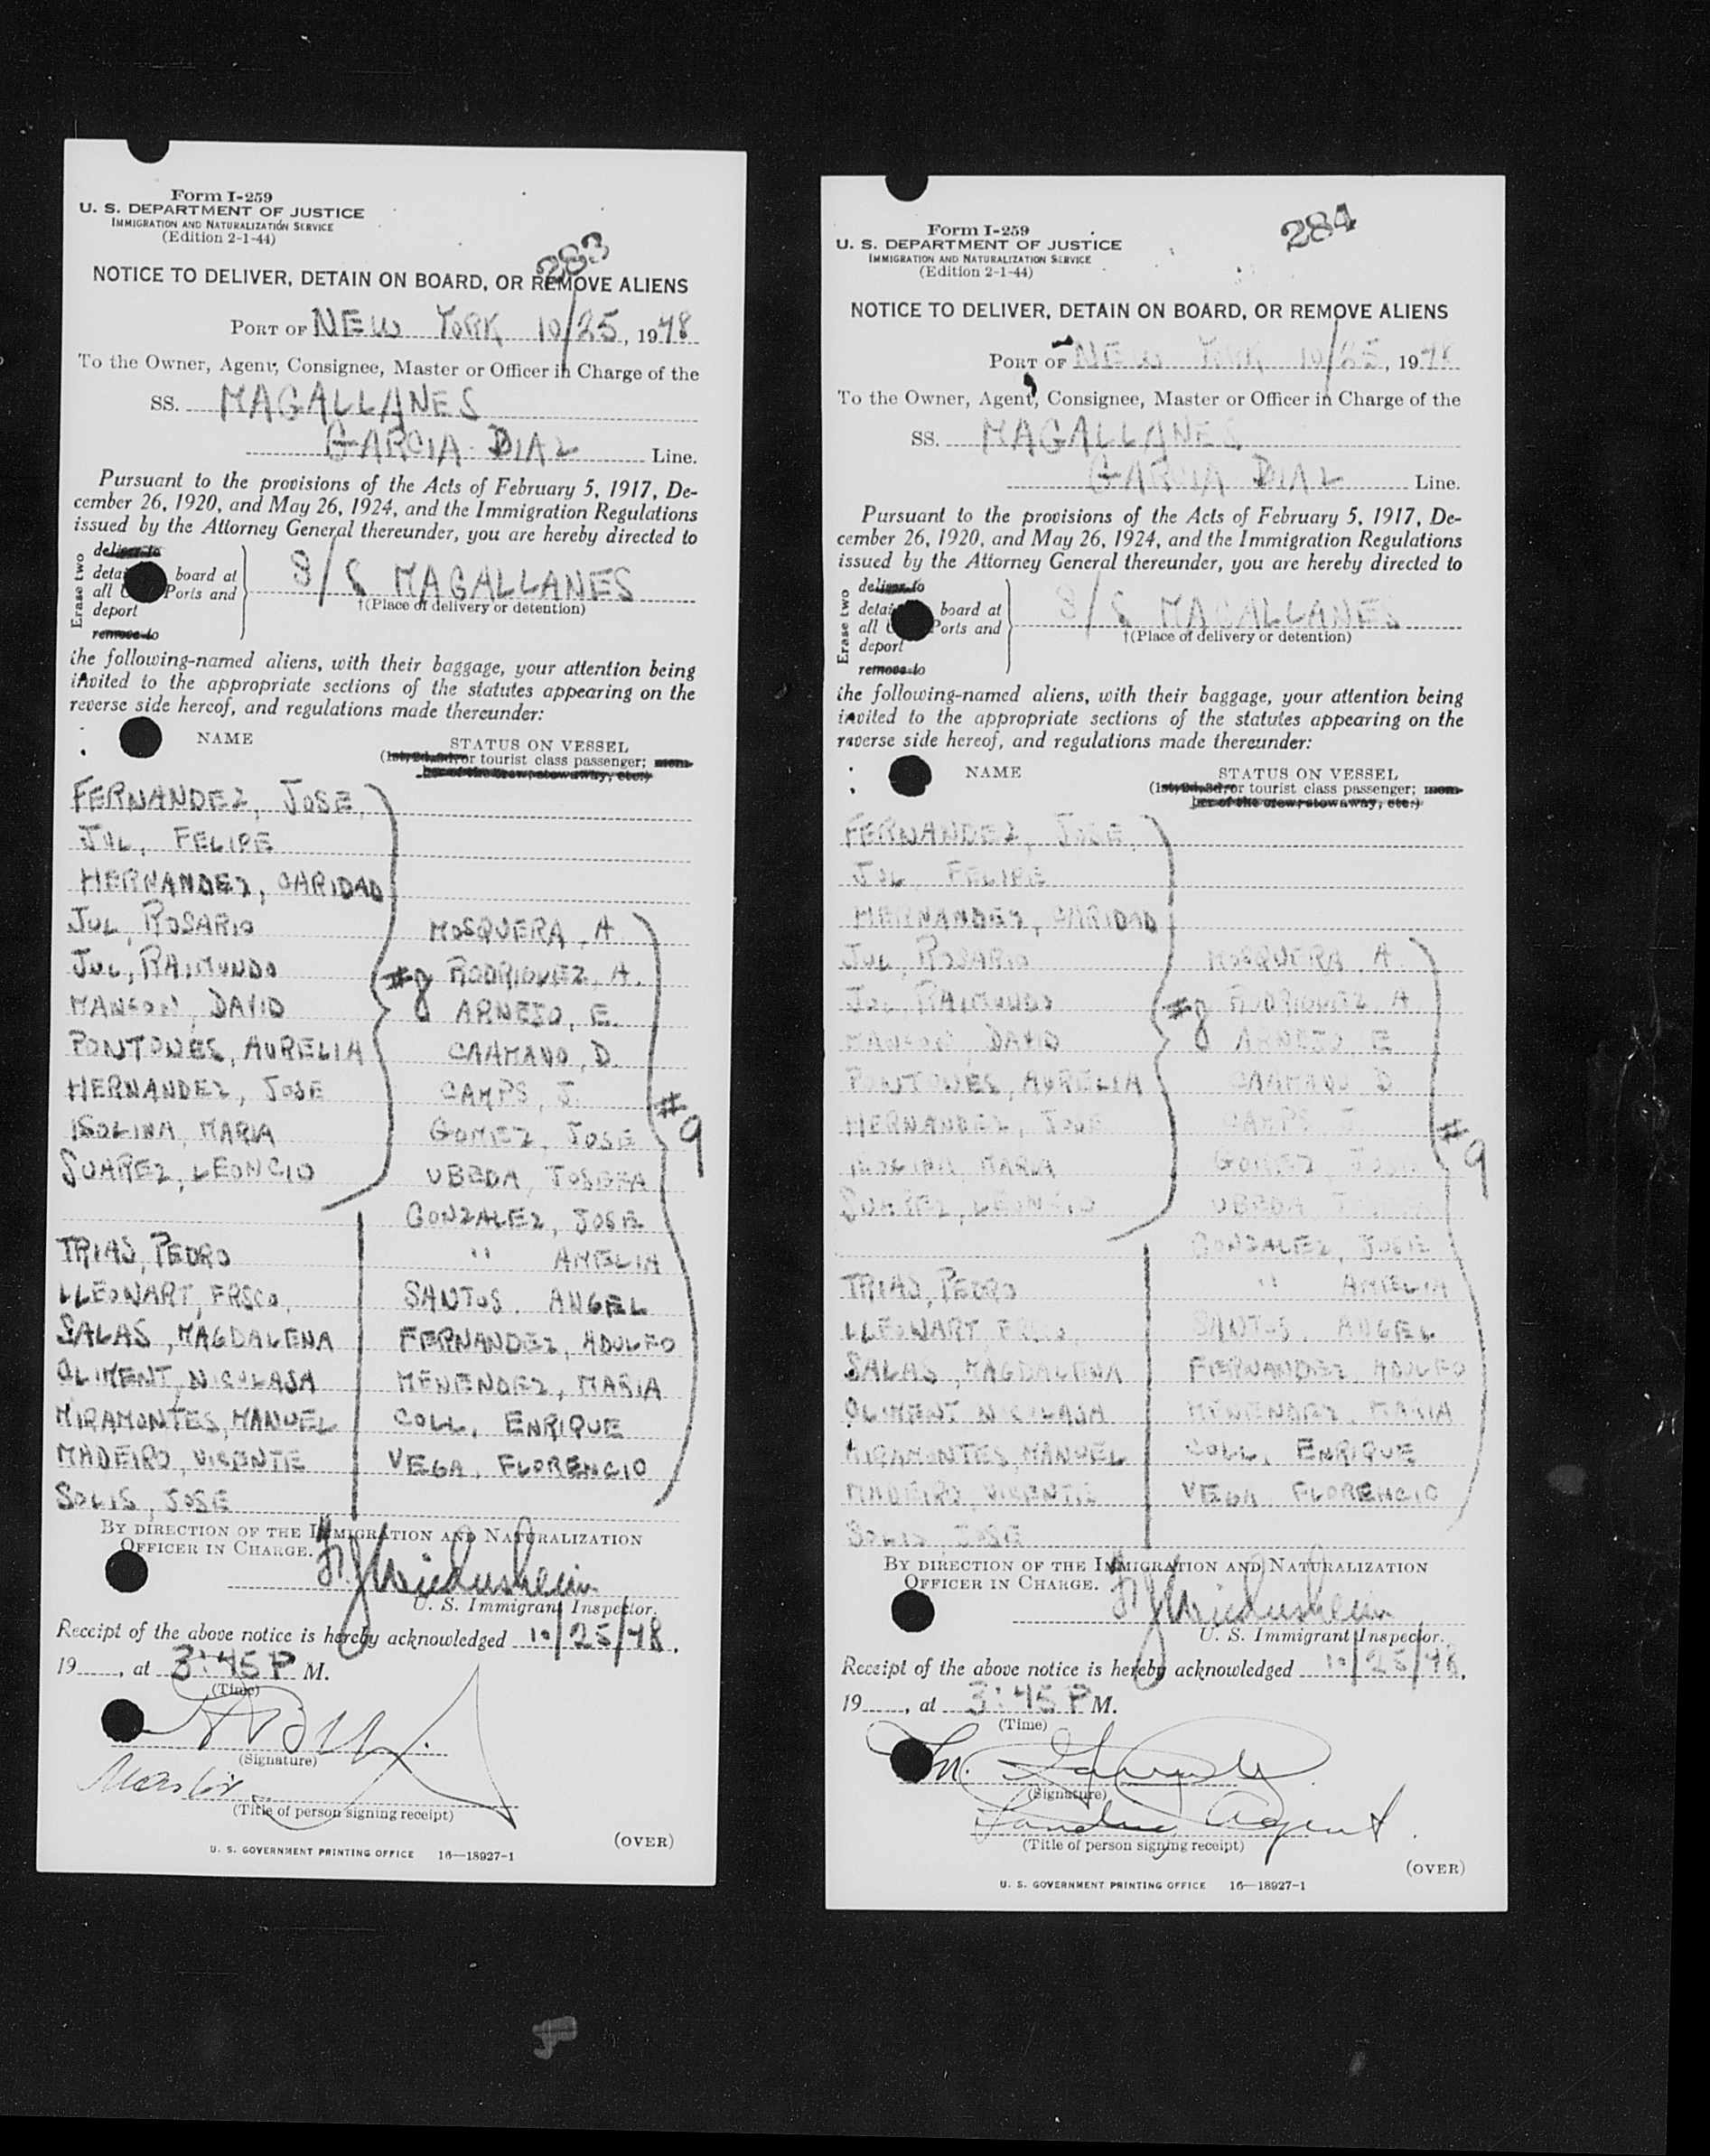 Form I-259
U. S. DEPARTMENT OF JUSTICE
IMMIGRATION AND NATURALIZATION SERVICE
(Edition 2-1-44)
283
NOTICE TO DELIVER, DETAIN ON BOARD, OR REMOVE ALIENS
PORT OF NEW YORK 10/25, 1948
To the Owner, Agent, Consignee, Master or Officer in Charge of the
SS. MAGALLANES
GARCIA DIAZ Line.
Pursuant to the provisions of the Acts of February 5, 1917, De-
cember 26, 1920, and May 26, 1924, and the Immigration Regulations
issued by the Attorney General thereunder, you are hereby directed to
Erase two
deliver to
board at
all Ports and
deport
remove to
S/S MAGALLANES
†(Place of delivery or detention)
the following-named aliens, with their baggage, your attention being
invited to the appropriate sections of the statutes appearing on the
reverse side hereof, and regulations made thereunder:
NAME STATUS ON VESSEL
(1st, 2d, 3d, or tourist class passenger; mem-
ber of the crew, stowaway, etc.)
FERNANDEZ, JOSE,
JUL, FELIPE
HERNANDEZ, CARIDAD
JUL, ROSARIO MOSQUERA, A
JUL, RAIMUNDO #8 RODRIGUEZ, A.
DAVID ARNEJO, E.
PONTONES, AURELIA CAAMANO, D.
HERNANDEZ, JOSE CAMPS, J. #9
ISOLINA, MARIA GOMEZ, JOSE
SUAREZ, LEONCIO UBEDA, JOSEFA
GONZALEZ, JOSE
TRIAS, PEDRO " AMELIA
LLEONART, FRSCO, SANTOS. ANGEL
SALAS, MAGDALENA FERNANDEZ, ADOLFO
OLIMENT, NICOLASA MENENDEZ, MARIA
MIRAMONTES, MANUEL COLL, ENRIQUE
MADEIRO, VICENTE VEGA, FLORENCIO
SOLIS, JOSE
BY DIRECTION OF THE IMMIGRATION AND NATURALIZATION
OFFICER IN CHARGE.
U. S. Immigrant Inspector.
Receipt of the above notice is hereby acknowledged 10/25/48,
19, at 3:45 P M.
(Time)
(Signature)
Master
(Title of person signing receipt)
(OVER)
U. S. GOVERNMENT PRINTING OFFICE 16—18927-1
Form I-259
U. S. DEPARTMENT OF JUSTICE
IMMIGRATION AND NATURALIZATION SERVICE
(Edition 2-1-44)
284
NOTICE TO DELIVER, DETAIN ON BOARD, OR REMOVE ALIENS
PORT OF NEW YORK 10/25, 1948
To the Owner, Agent, Consignee, Master or Officer in Charge of the
SS. MAGALLANES
GARCIA DIAZ Line.
Pursuant to the provisions of the Acts of February 5, 1917, De-
cember 26, 1920, and May 26, 1924, and the Immigration Regulations
issued by the Attorney General thereunder, you are hereby directed to
Erase two
deliver to
board at
all Ports and
deport
remove to
S/S MAGALLANES
†(Place of delivery or detention)
the following-named aliens, with their baggage, your attention being
invited to the appropriate sections of the statutes appearing on the
reverse side hereof, and regulations made thereunder:
NAME STATUS ON VESSEL
(1st, 2d, 3d, or tourist class passenger; mem-
ber of the crew, stowaway, etc.)
FERNANDEZ, JOSE,
JUL, FELIPE
HERNANDEZ, CARIDAD
JUL, ROSARIO MOSQUERA, A.
JUL, RAIMUNDO #8 RODRIGUEZ, A
DAVID ARNEJO, E
PONTONES, AURELIA CAAMANO D
HERNANDEZ, JOSE CAMPS J #9
ISOLINA, MARIA GOMEZ, JOSE
SUAREZ, LEONCIO UBEDA
GONZALEZ, JOSE
TRIAS, PEDRO " AMELIA
LLEONART SANTOS. ANGEL
SALAS, MAGDALENA FERNANDEZ, ADOLFO
OLIMENT NICOLASA MENENDEZ, MARIA
MIRAMONTES, MANUEL COLL, ENRIQUE
MADEIRO, VICENTE VEGA, FLORENCIO
SOLIS, JOSE
BY DIRECTION OF THE IMMIGRATION AND NATURALIZATION
OFFICER IN CHARGE.
U. S. Immigrant Inspector.
Receipt of the above notice is hereby acknowledged 10/25/48,
19, at 3:45 P M.
(Time)
(Signature)
Agent.
(Title of person signing receipt)
(OVER)
U. S. GOVERNMENT PRINTING OFFICE 16—18927-1